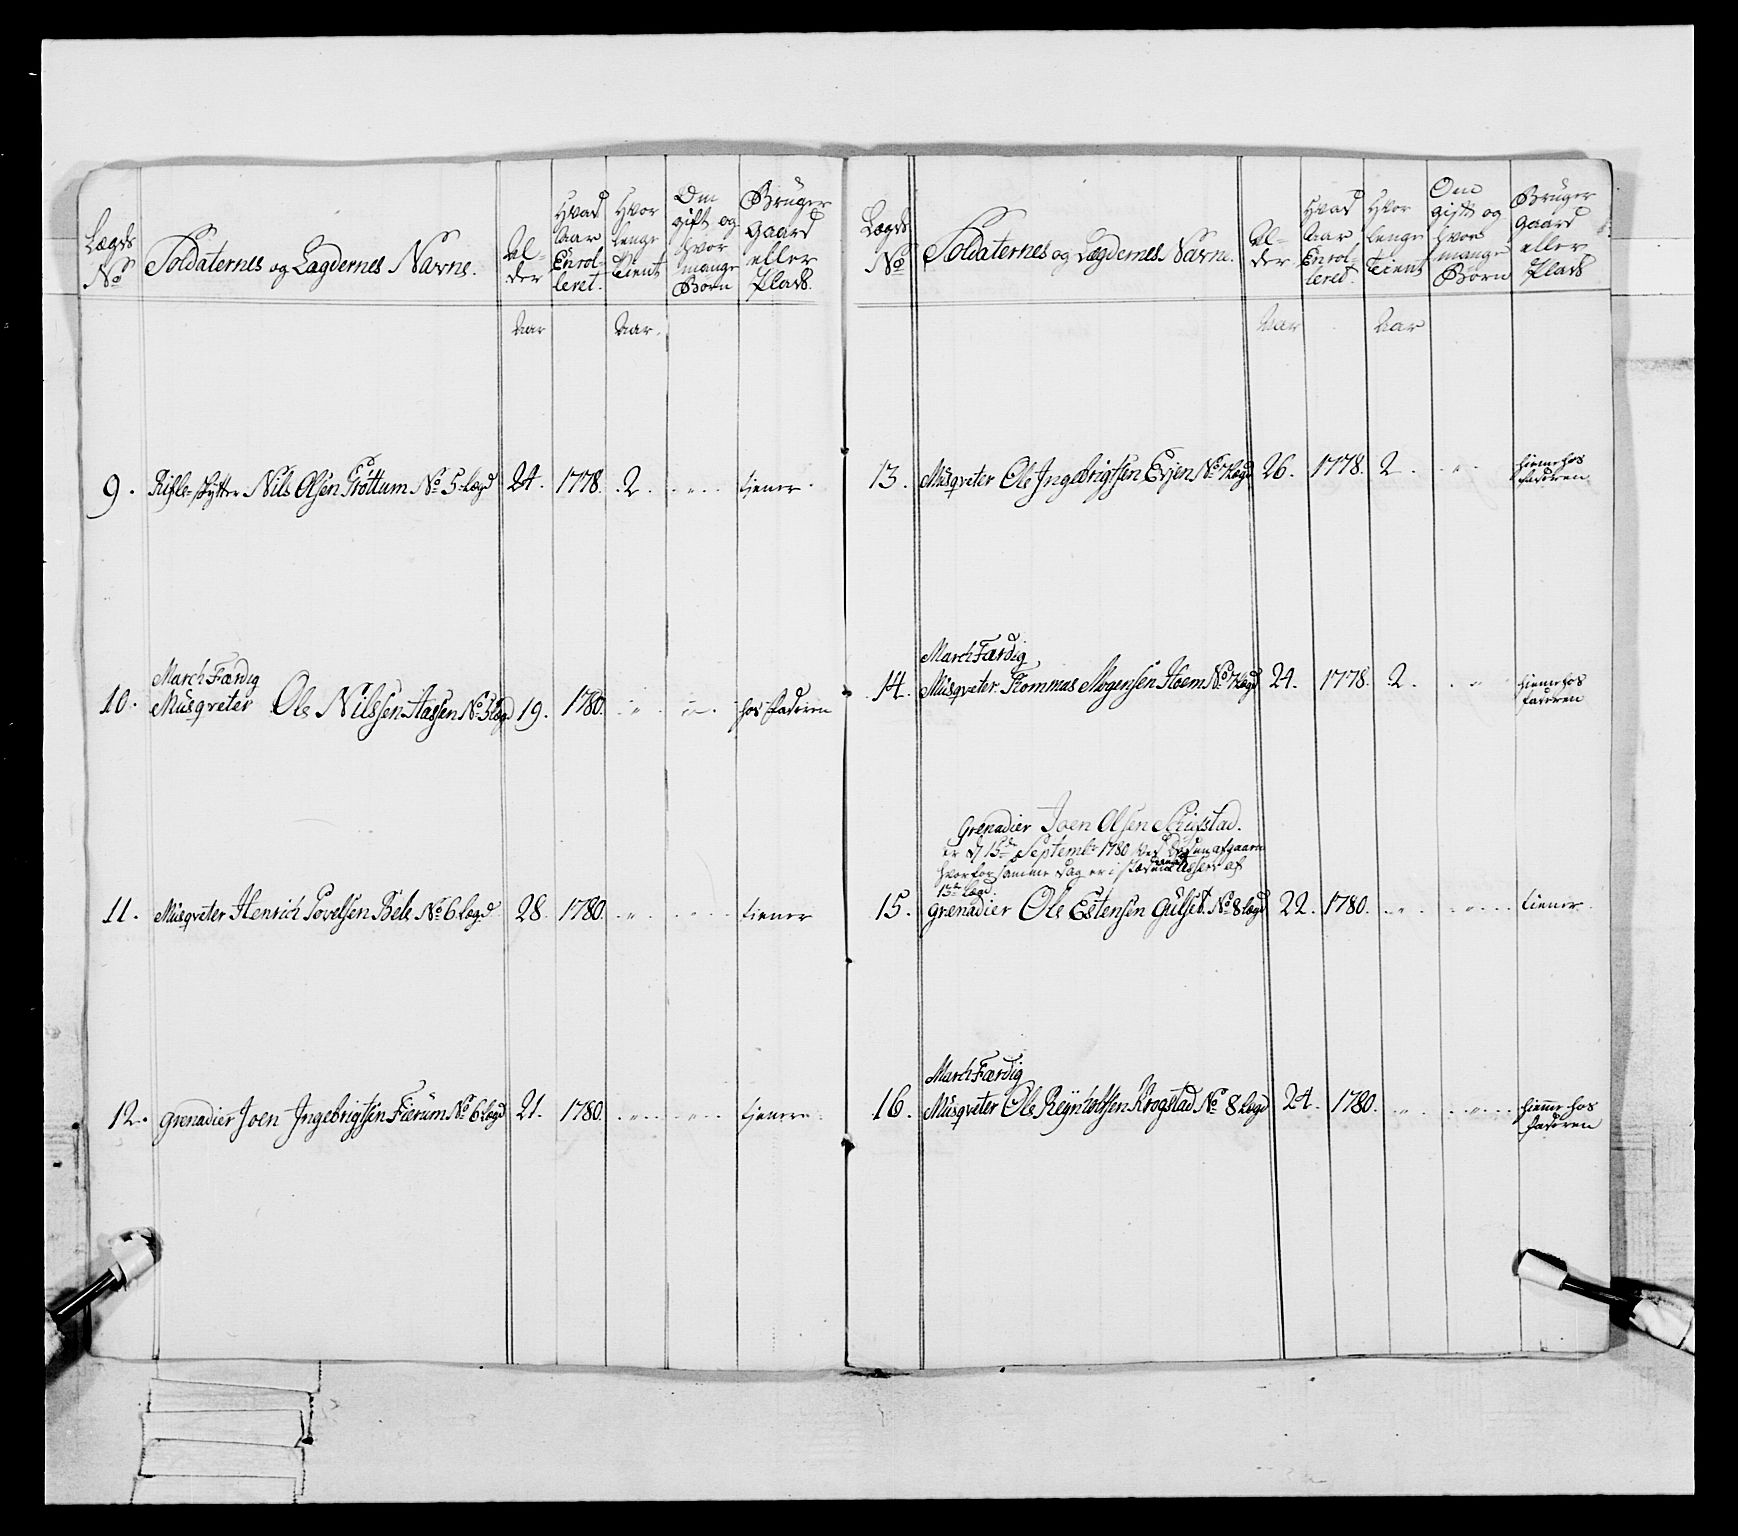 Lægds No
Soldaternes og Lægdernes Navne.
Al-
der
Hvad
Aar
Enrol-
leret.
Hvor
lenge
tient
Om
gift og
hvor
mange
Børn
Brüger
gaard
eller
Plads.
Aar
Aar.
9. Rifle-skytter Nils Olsen Trøttum No 5 Lægd 24. 1778. 2. tiener.
March Færdig
10. Müsqveter Ole Nilssen Aassen No 5 Lægd 19. 1780. " " hos faderen
11. Müsqveter Henrich Povelsen Bele No 6 Lægd 28. 1780. " " tiener
12. Grenadier Joen Ingebrigtsen Fierüm No 6 Lægd 21. 1780. " " tiener
Lægds No
Soldaternes og Lægdernes Navne.
Al-
der
Hvad
Aar
Enrol-
leret.
Hvor
lenge
tient
Om
gift og
hvor
mange
Børn
Brüger
gaard
eller
Plads
Aar
Aar
13. Müsqveter Ole Ingebrigtsen Evjen No 7 Lægd 26. 1778. 2. " hiemme hos
faderen
March Færdig
14. Müsqveter Tommas Mogensen Hoem No 7 Lægd 24. 1778. 2. " hiemme hos
faderen
Grenadier Joen Olsen
er d 15de Septembr 1780 ved Døden afgaaen
hvorfor samme dag er i stæden af
13de Lægd.
15. Grenadier Ole Estensen Gülset. No 8 Lægd 22. 1780. " " tiener
March Færdig
16. Müsqveter Ole Reÿnholtsen Krogstad No 8 Lægd 24. 1780. " " hiemme hos
faderen